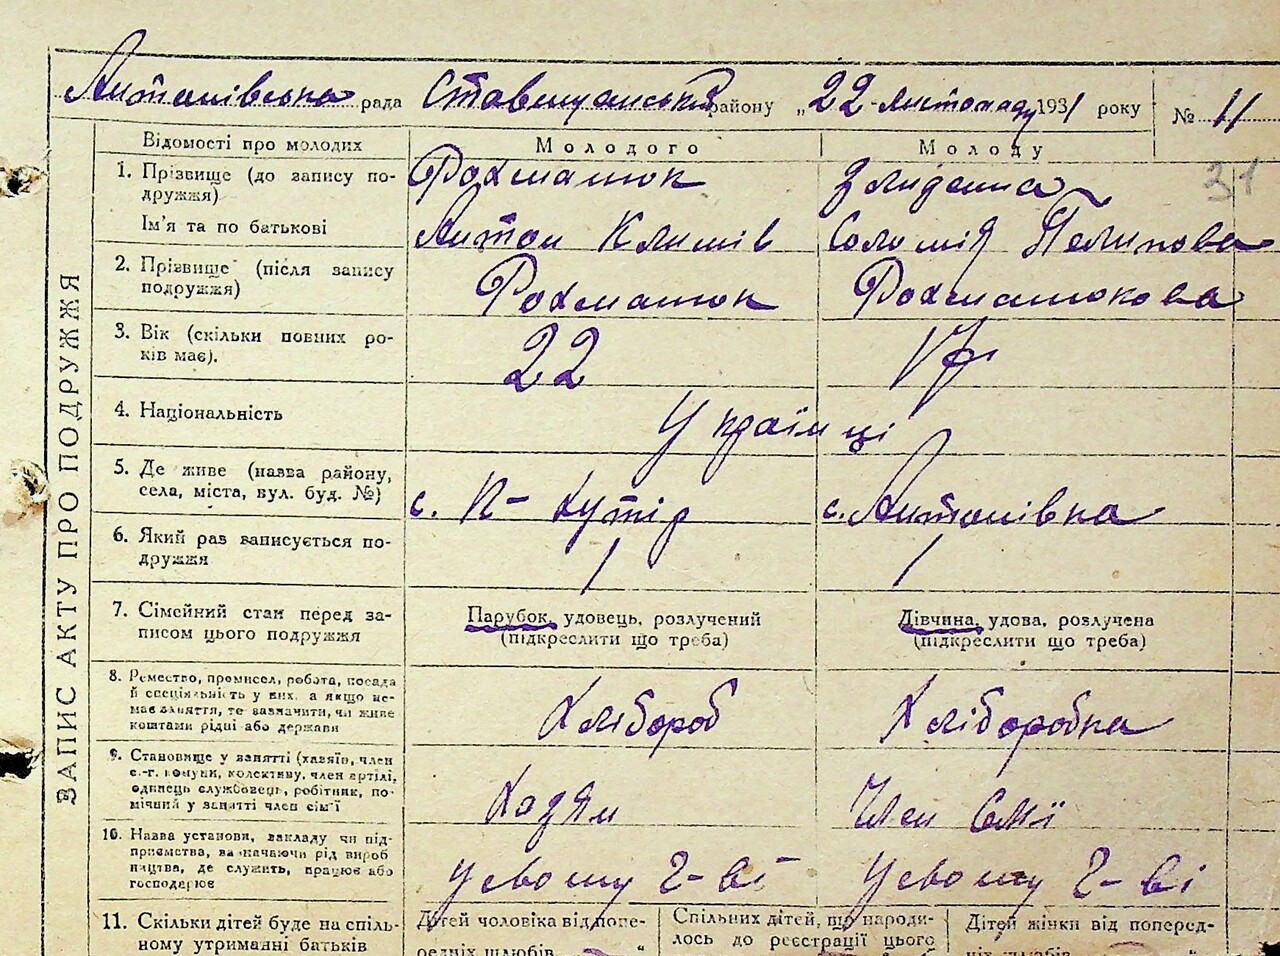 Антонівська рада Ставищанський району „22 листопаду 1931 року № 11
ЗАПИС АКТУ ПРО ПОДРУЖЖЯ
Відомості про молодих Молодого Молоду
31
1. Прізвище (до запису по-
дружжя)
Рохманюк
Ім'я та по батькові
Антон Климів
Соломія Пелипова
2. Прізвище (після запису
подружжя)
Рохманюк Рохманюкова
3. Вік (скільки повних ро-
ків має).
22
4. Національність Українці
5. Де живе (назва району,
села, міста, вул. буд. №)
с. П- Хутір с. Антонівка
6. Який раз записується по-
дружжя
1 1
7. Сімейний стан перед за-
писом цього подружжя
Парубок, удовець, розлучений
(підкреслити що треба)
Дівчина, удова, розлучена
(підкреслити що треба)
8. Ремество, промисел, робота, посада
й спеціяльність у них, а якщо не-
має заняття, то зазначити, чи живе
коштами рідні або держави
Хлібороб Хліборобка
9. Становище у занятті (хазяїн, член
с.-г. комуни, колективу, член артілі,
одинець службовець, робітник, по-
мічний у занятті член сім'ї
Член Сімї
10. Назва установи, закладу чи під-
приємства, зазначаючи рід вироб
ництва, де служить, працює або
господарює
У свому г-ві У свому г-ві
11. Скільки дітей буде на спіль-
ному утриманні батьків
Дітей чоловіка від попе-
редніх шлюбів
Спільних дітей, що народи-
лось до реєстрації цього
Дітей жінки від поперед-
ніх шлюбів